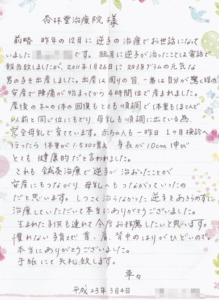 杏林堂治療院 様
前略 昨年の12月に逆子の治療でお世話になって
いました です。結果に逆子が治ったことは電話で
報告致しましたが、2011年1月26日に3058グラムの元気な
男の子を出産しました。出産は周りの皆、一番は自分が驚く程の
安産で陣痛が始まってから4時間ほどで産まれました。
産後の私の体の回復もとても順調で(体重もほとんど
以前と同じ位にもどり、母乳も順調に出ている為、
完全母乳で育てています。赤ちゃんも一昨日1ヶ月検診へ
行ったら 体重が1500g 身長が10cm伸び
とても健康的だと言われました。
これも鍼灸治療で逆子が治ったことが
安産にもつながり、母乳へもつながっていったの
だと思います。しつこく治らなかった逆子をあきらめずに
治療していただいて本当にありがとうございました。
生まれた子供も連れて今度お邪魔したいと思います。
慣れない子育てで首、肩、背中のはりがひどいので。
本当にありがとうございました。
手紙にて失礼致します。
草々
平成23年3月4日